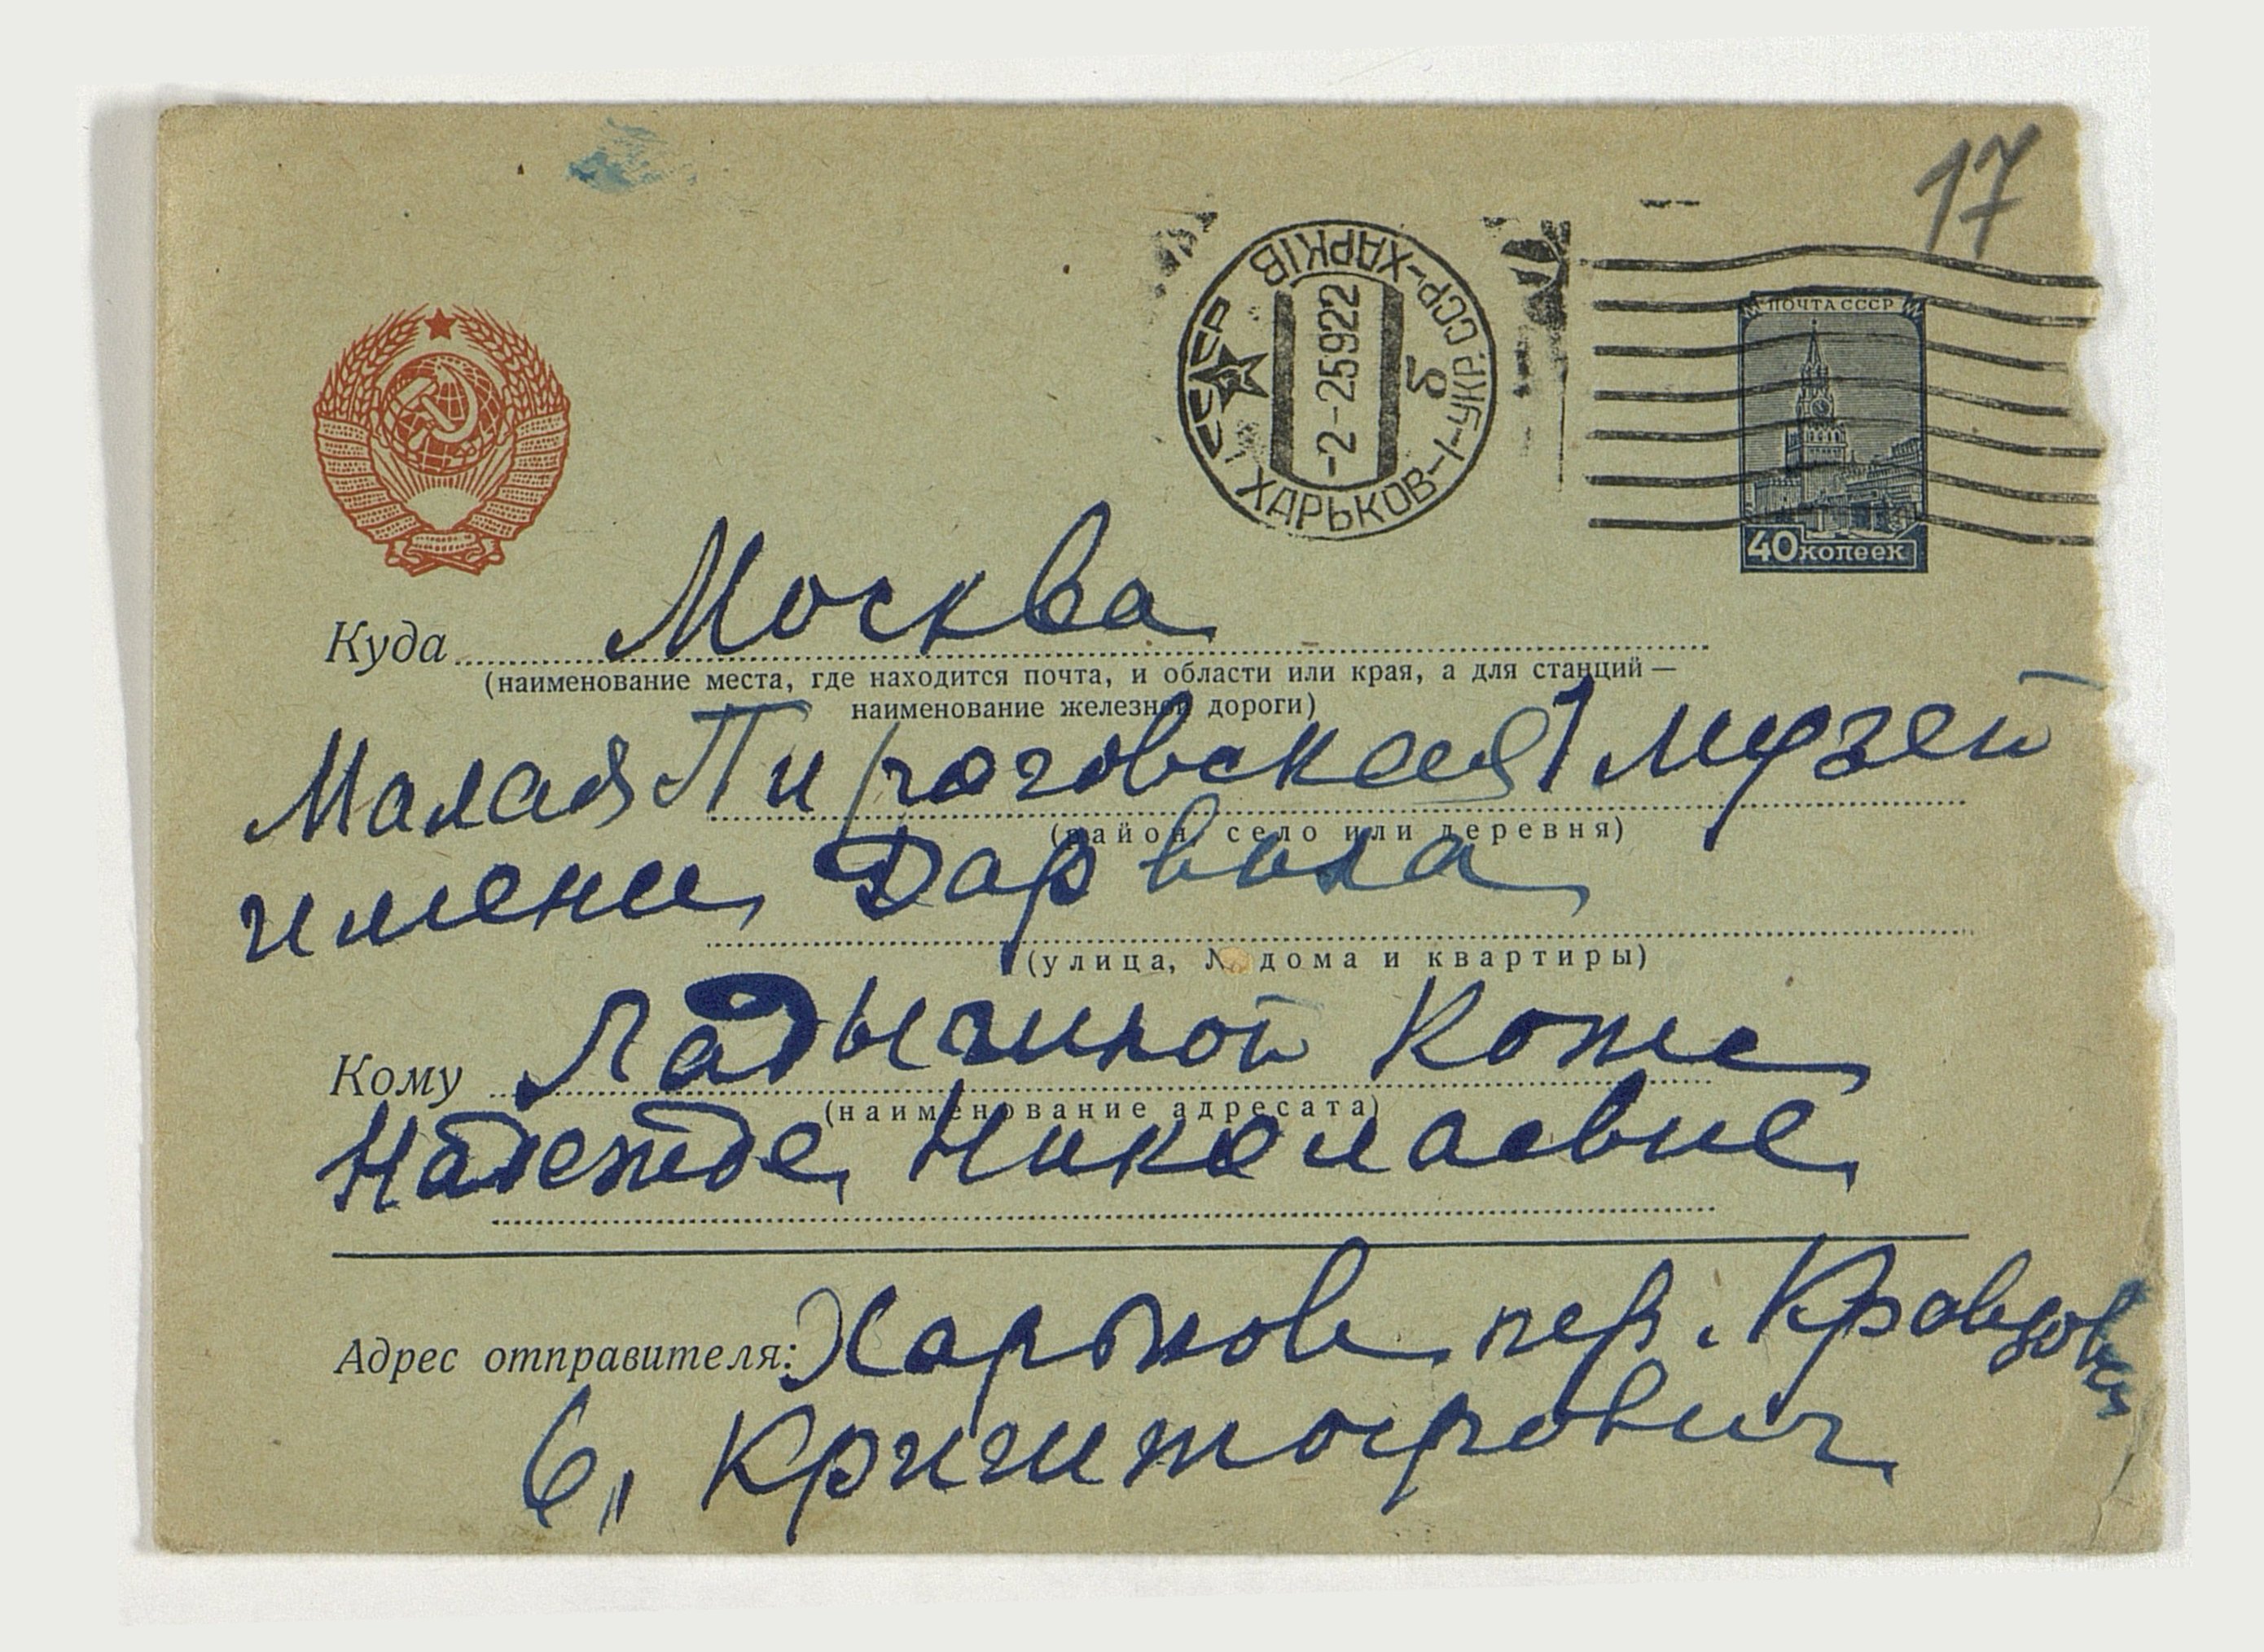 17
ПОЧТА СССР
40 копеек
СССР
ХАРЬКОВ-1-УКР.ССР-ХАРКІВ
-2-25922
б
Куда Москва
(наименование места, где находится почта, и области или края, а для станций —
наименование железной дороги)
Малая Пироговская 1 музей
(район, село или деревня)
имени Дарвина
(улица, № дома и квартиры)
Кому Ладыгиной Котс
(наименование адресата)
Надежде Николаевне
Адрес отправителя: Харьков пер. Кравцова
6, Криштофович